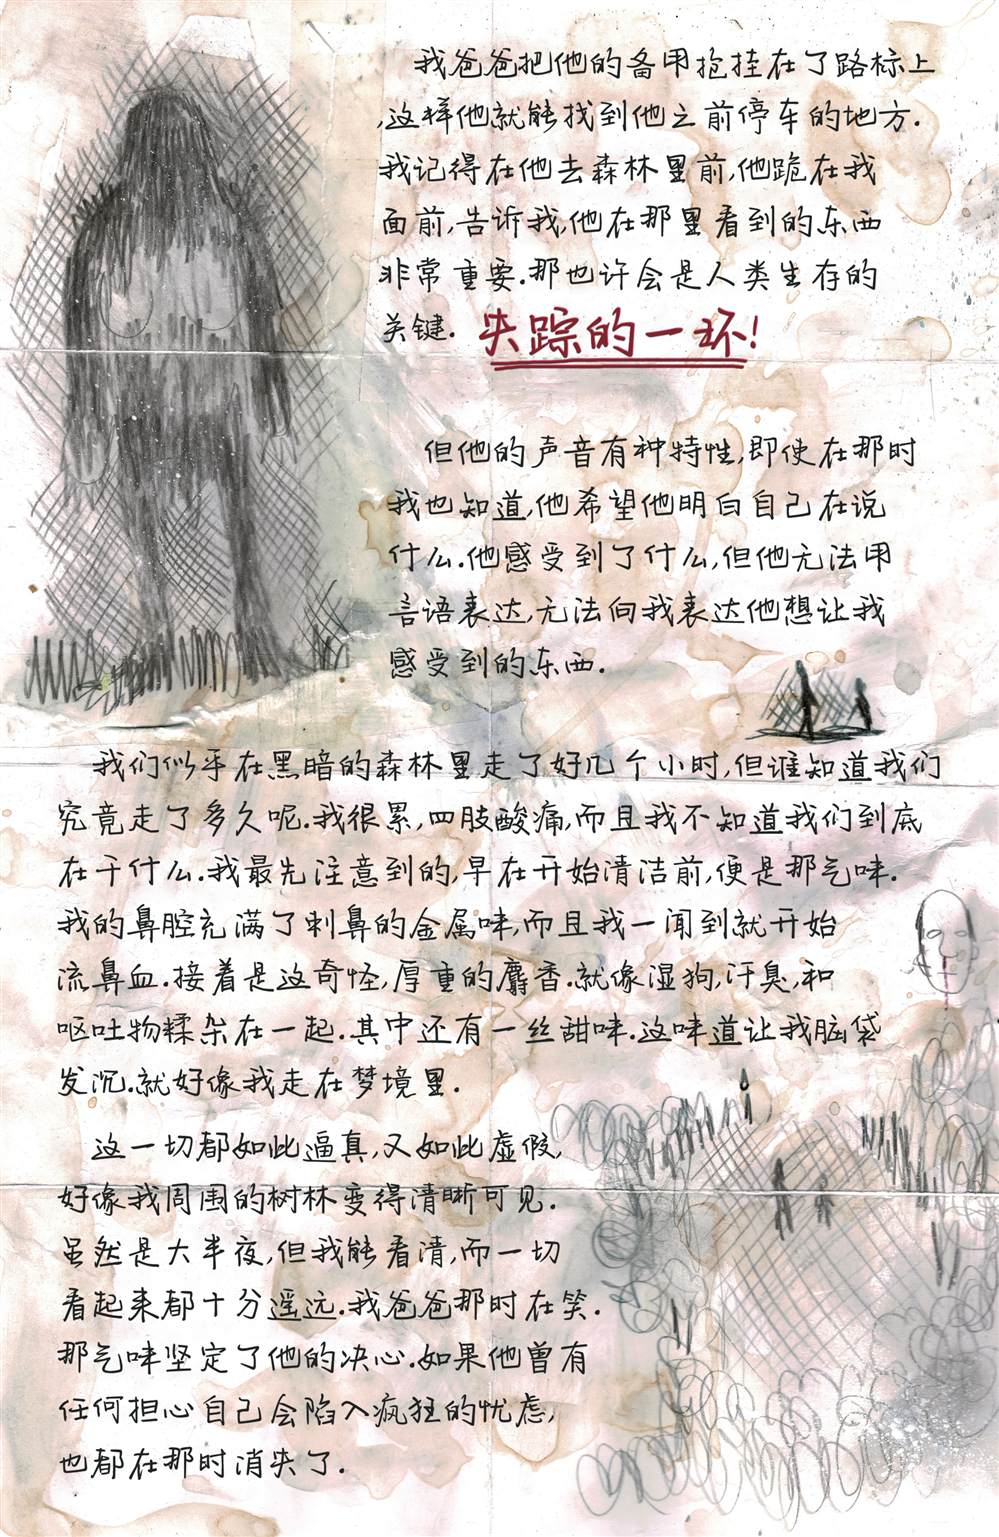 我爸爸把他的备用抱挂在了路标上
,这样他就能找到他之前停车的地方.
我记得在他去森林里前,他跪在我
面前,告诉我,他在那里看到的东西
非常重要.那也许会是人类生存的
关键.失踪的一环!
但他的声音有种特性,即使在那时
我也知道,他希望他明白自己在说
什么.他感受到了什么,但他无法用
言语表达,无法向我表达他想让我
感受到的东西.
我们似乎在黑暗的森林里走了好几个小时,但谁知道我们
究竟走了多久呢.我很累,四肢酸痛,而且我不知道我们到底
在干什么.我最先注意到的,早在开始清洁前,便是那气味.
我的鼻腔充满了刺鼻的金属味,而且我一闻到就开始
流鼻血.接着是这奇怪,厚重的麝香.就像湿狗,汗臭,和
呕吐物糅杂在一起.其中还有一丝甜味.这味道让我脑袋
发沉.就好像我走在梦境里.
这一切都如此逼真,又如此虚假,
好像我周围的树林变得清晰可见.
虽然是大半夜,但我能看清,而一切
看起来都十分遥远.我爸爸那时在笑.
那气味坚定了他的决心.如果他曾有
任何担心自己会陷入疯狂的忧虑,
也都在那时消失了.